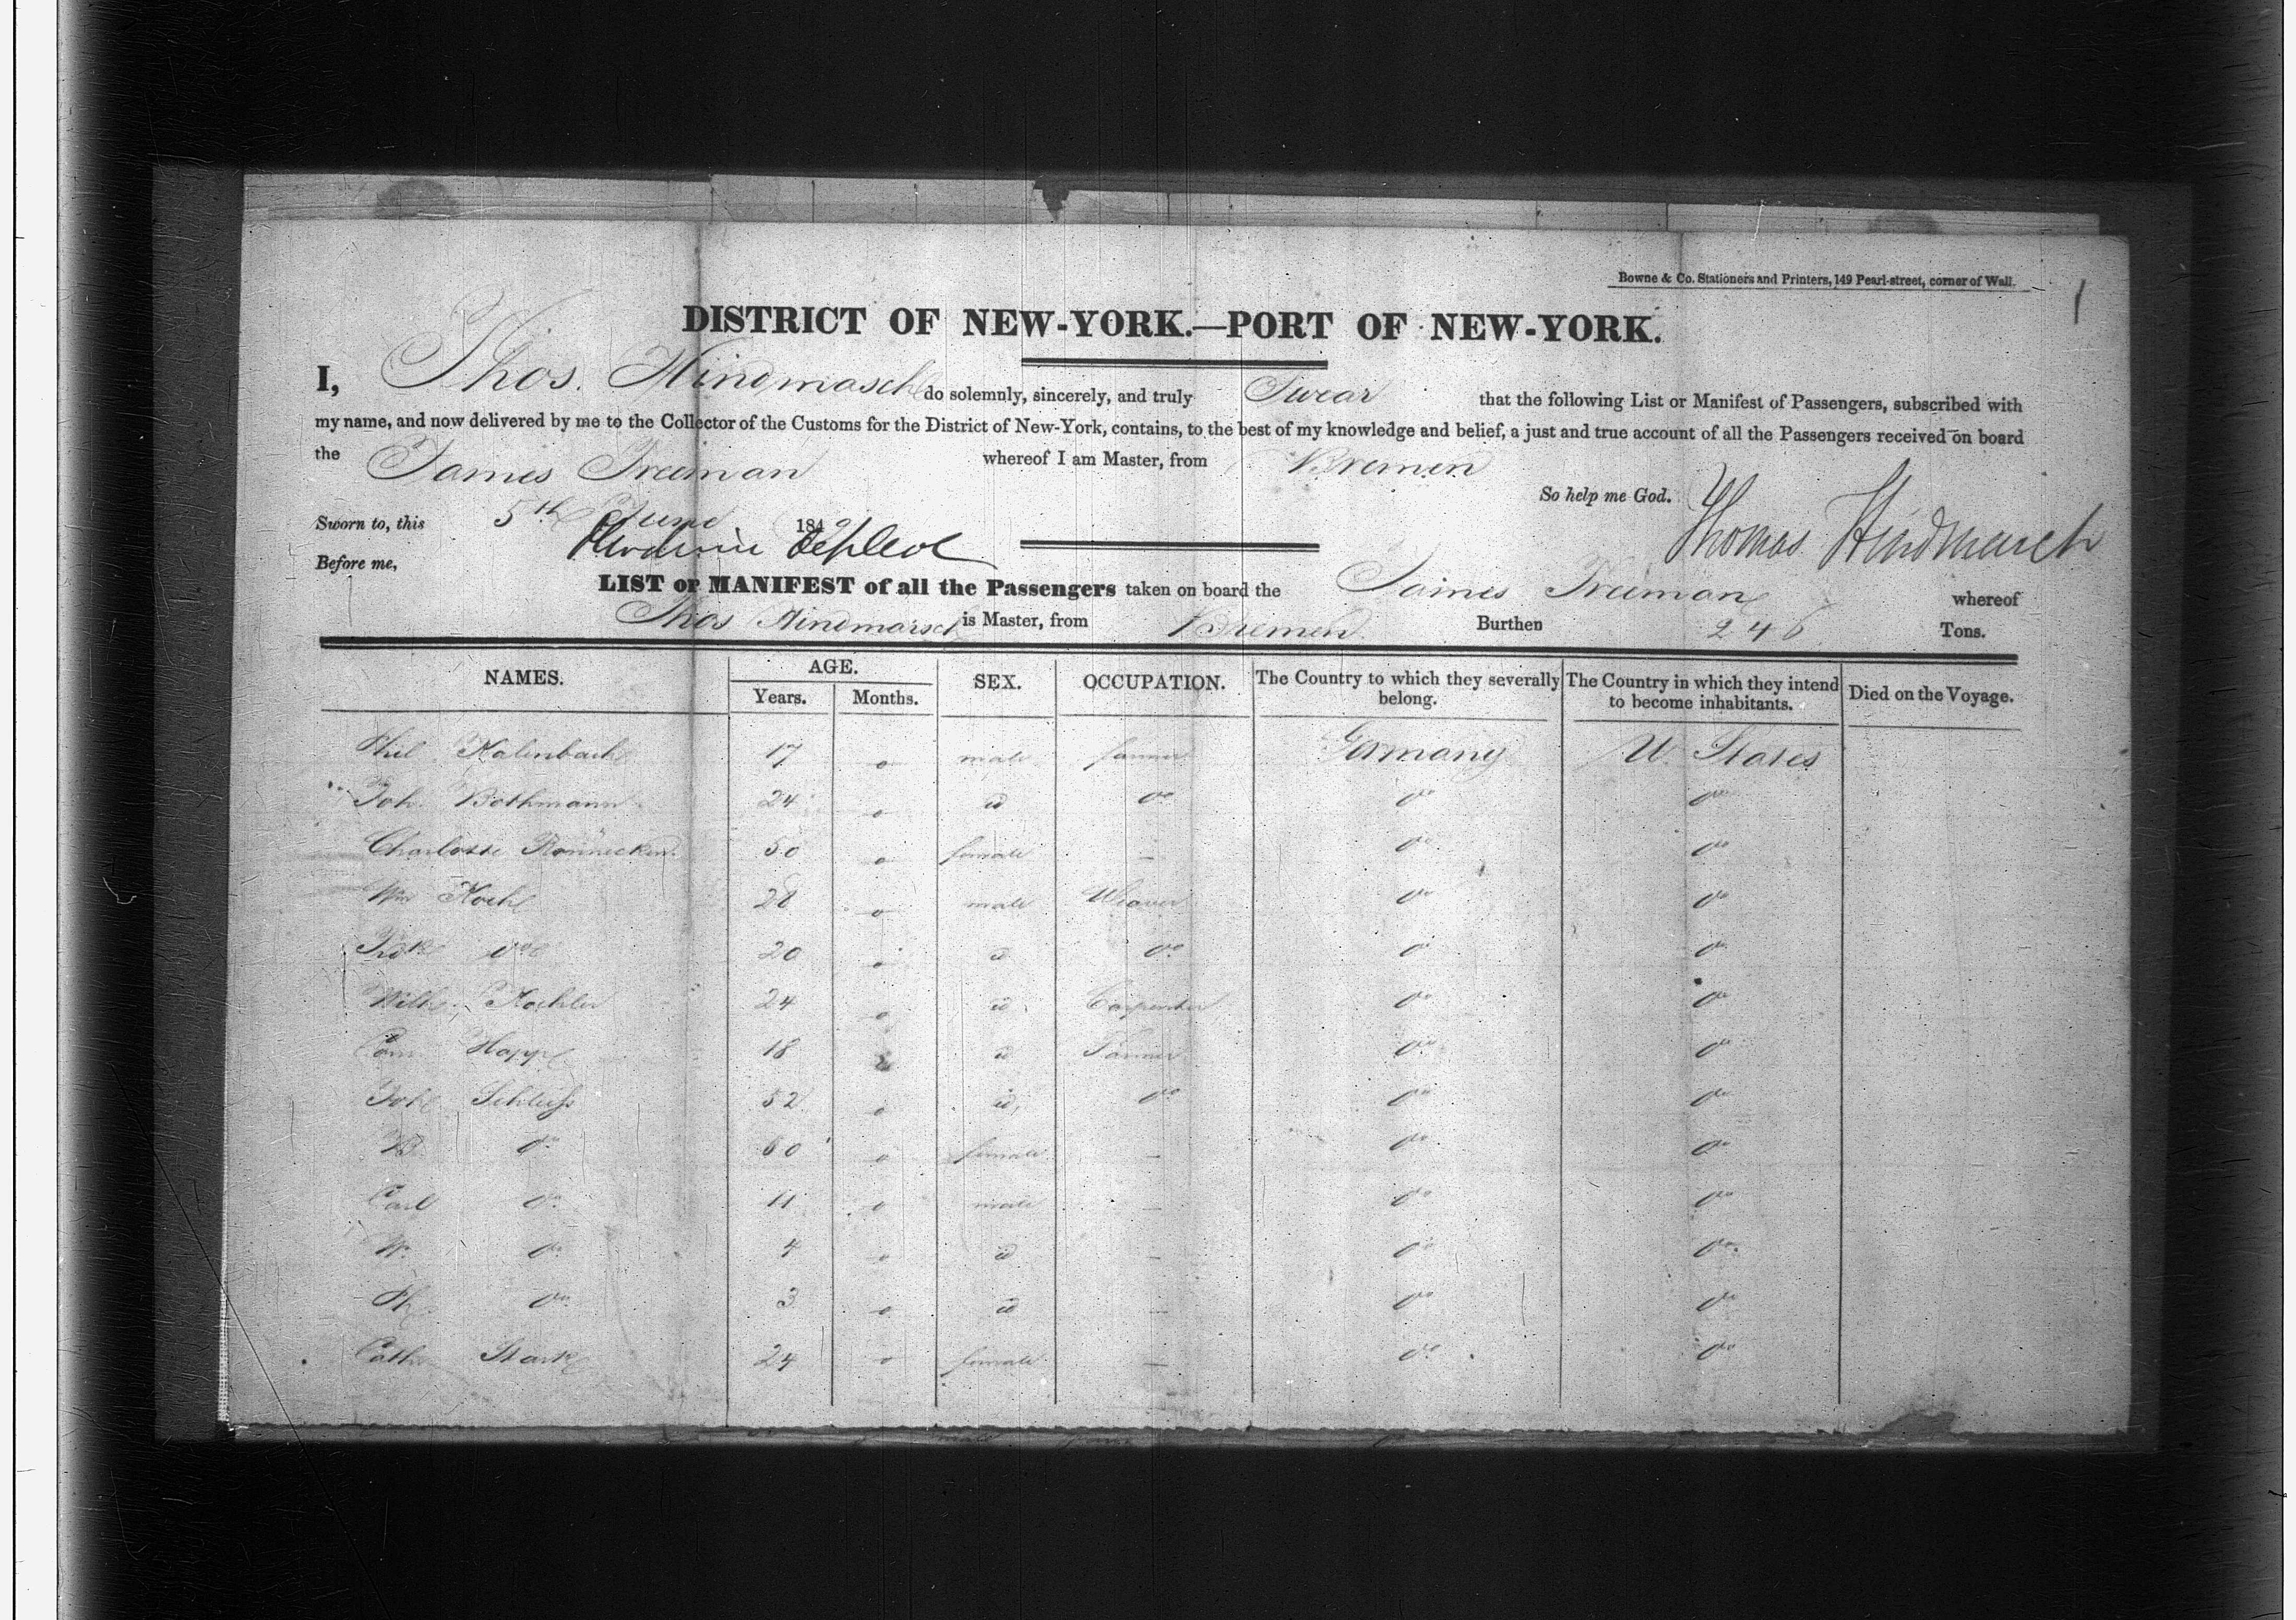 Bowne & Co. Stationers and Printers, 149 Pearl-street, corner of Wall.
1
DISTRICT OF NEW-YORK.—PORT OF NEW-YORK.
I, Thos. Hindmarsch do solemnly, sincerely, and truly Swear that the following List or Manifest of Passengers, subscribed with
my name, and now delivered by me to the Collector of the Customs for the District of New-York, contains, to the best of my knowledge and belief, a just and true account of all the Passengers received on board
the James Freeman whereof I am Master, from Bremen
So help me God. Thomas Hindmarch
Sworn to, this 5th June 184
Before me,
LIST OR MANIFEST of all the Passengers taken on board the James Freeman whereof
Thos Hindmarsch is Master, from Bremen Burthen 246 Tons.
NAMES. AGE. Years. Months. SEX. OCCUPATION. The Country to which they severally belong. The Country in which they intend to become inhabitants. Died on the Voyage.
Phil Kalenbach 17 o male farmer Germany U. States
Joh. Bothmann 24 o id do do do
Charlotte 50 o female — do do
Wm Koch 28 o male Weaver do do
do 20 o id do do do
Wilh. Koehler 24 o id Carpenter do do
Happe 18 id Farmer do do
Joh Schleifs 52 o id do do do
do 60 o female — do do
Carl do 11 o male — do do
W. do 4 o id — do do
do 3 o id — do do
Cath Stark 24 o female — do do